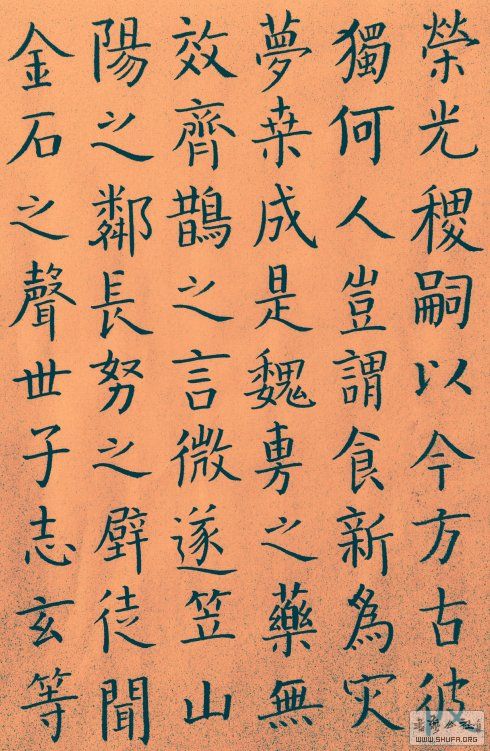 榮光稷嗣以今方古彼
獨何人豈謂食新為灾
夢桒成是魏旉之藥無
效齊鵲之言微遂笠山
陽之鄰長努之壁徒聞
金石之聲世子志玄等
WWW.SHUFA.ORG